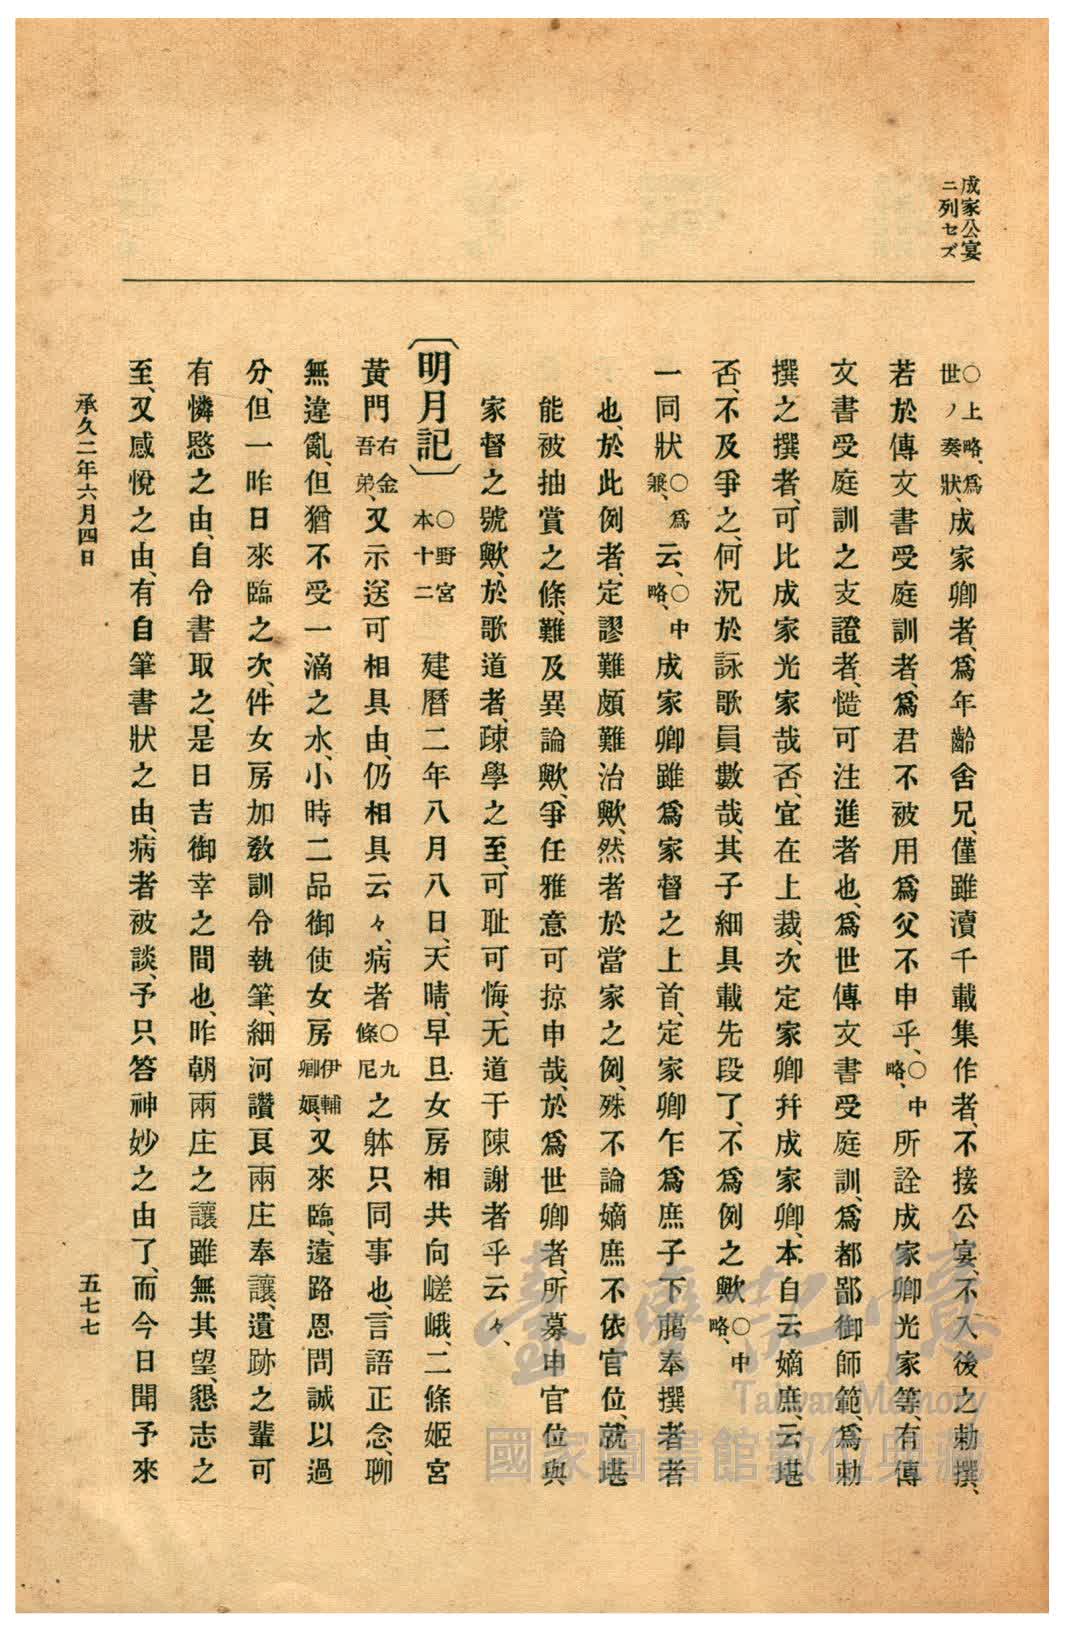 成家公宴
ニ列セズ
○上略、爲世ノ奏狀、成家卿者、爲年齡舍兄、僅雖瀆千載集作者、不接公宴、不入後之勅撰、
若於傳文書受庭訓者、爲君不被用爲父不申乎、○中略、所詮成家卿光家等、有傳
文書受庭訓之支證者、慥可注進者也、爲世傳文書受庭訓、爲都鄙御師範、爲勅
撰之撰者、可比成家光家哉否、宜在上裁、次定家卿幷成家卿、本自云嫡庶、云堪
否、不及爭之、何況於詠歌員數哉、其子細具載先段了、不爲例之歟、○中略、
一同狀○爲兼、云、○中略、成家卿雖爲家督之上首、定家卿乍爲庶子下﨟奉撰者者
也、於此例者、定謬難頗難治歟、然者於當家之例、殊不論嫡庶不依官位、就堪
能被抽賞之條、難及異論歟、爭任雅意可掠申哉、於爲世卿者、所募申官位與
家督之號歟、於歌道者、疎學之至、可耻可悔、无道于陳謝者乎云々、
〔明月記〕○野宮本十二 建曆二年八月八日、天晴、早旦女房相共向嵯峨、二條姬宮
黃門右金吾弟、又示送可相具由、仍相具云々、病者○九條尼之躰只同事也、言語正念、聊
無違亂、但猶不受一滴之水、小時二品御使女房伊輔卿娘、又來臨、遠路恩問誠以過
分、但一昨日來臨之次、件女房加敎訓令執筆、細河讚良兩庄奉讓、遺跡之輩可
有憐愍之由、自令書取之、是日吉御幸之間也、昨朝兩庄之讓雖無其望、懇志之
至、又感悅之由、有自筆書狀之由、病者被談、予只答神妙之由了、而今日聞予來
承久二年六月四日
五七七
臺灣記憶
Taiwan Memory
國家圖書館數位典藏